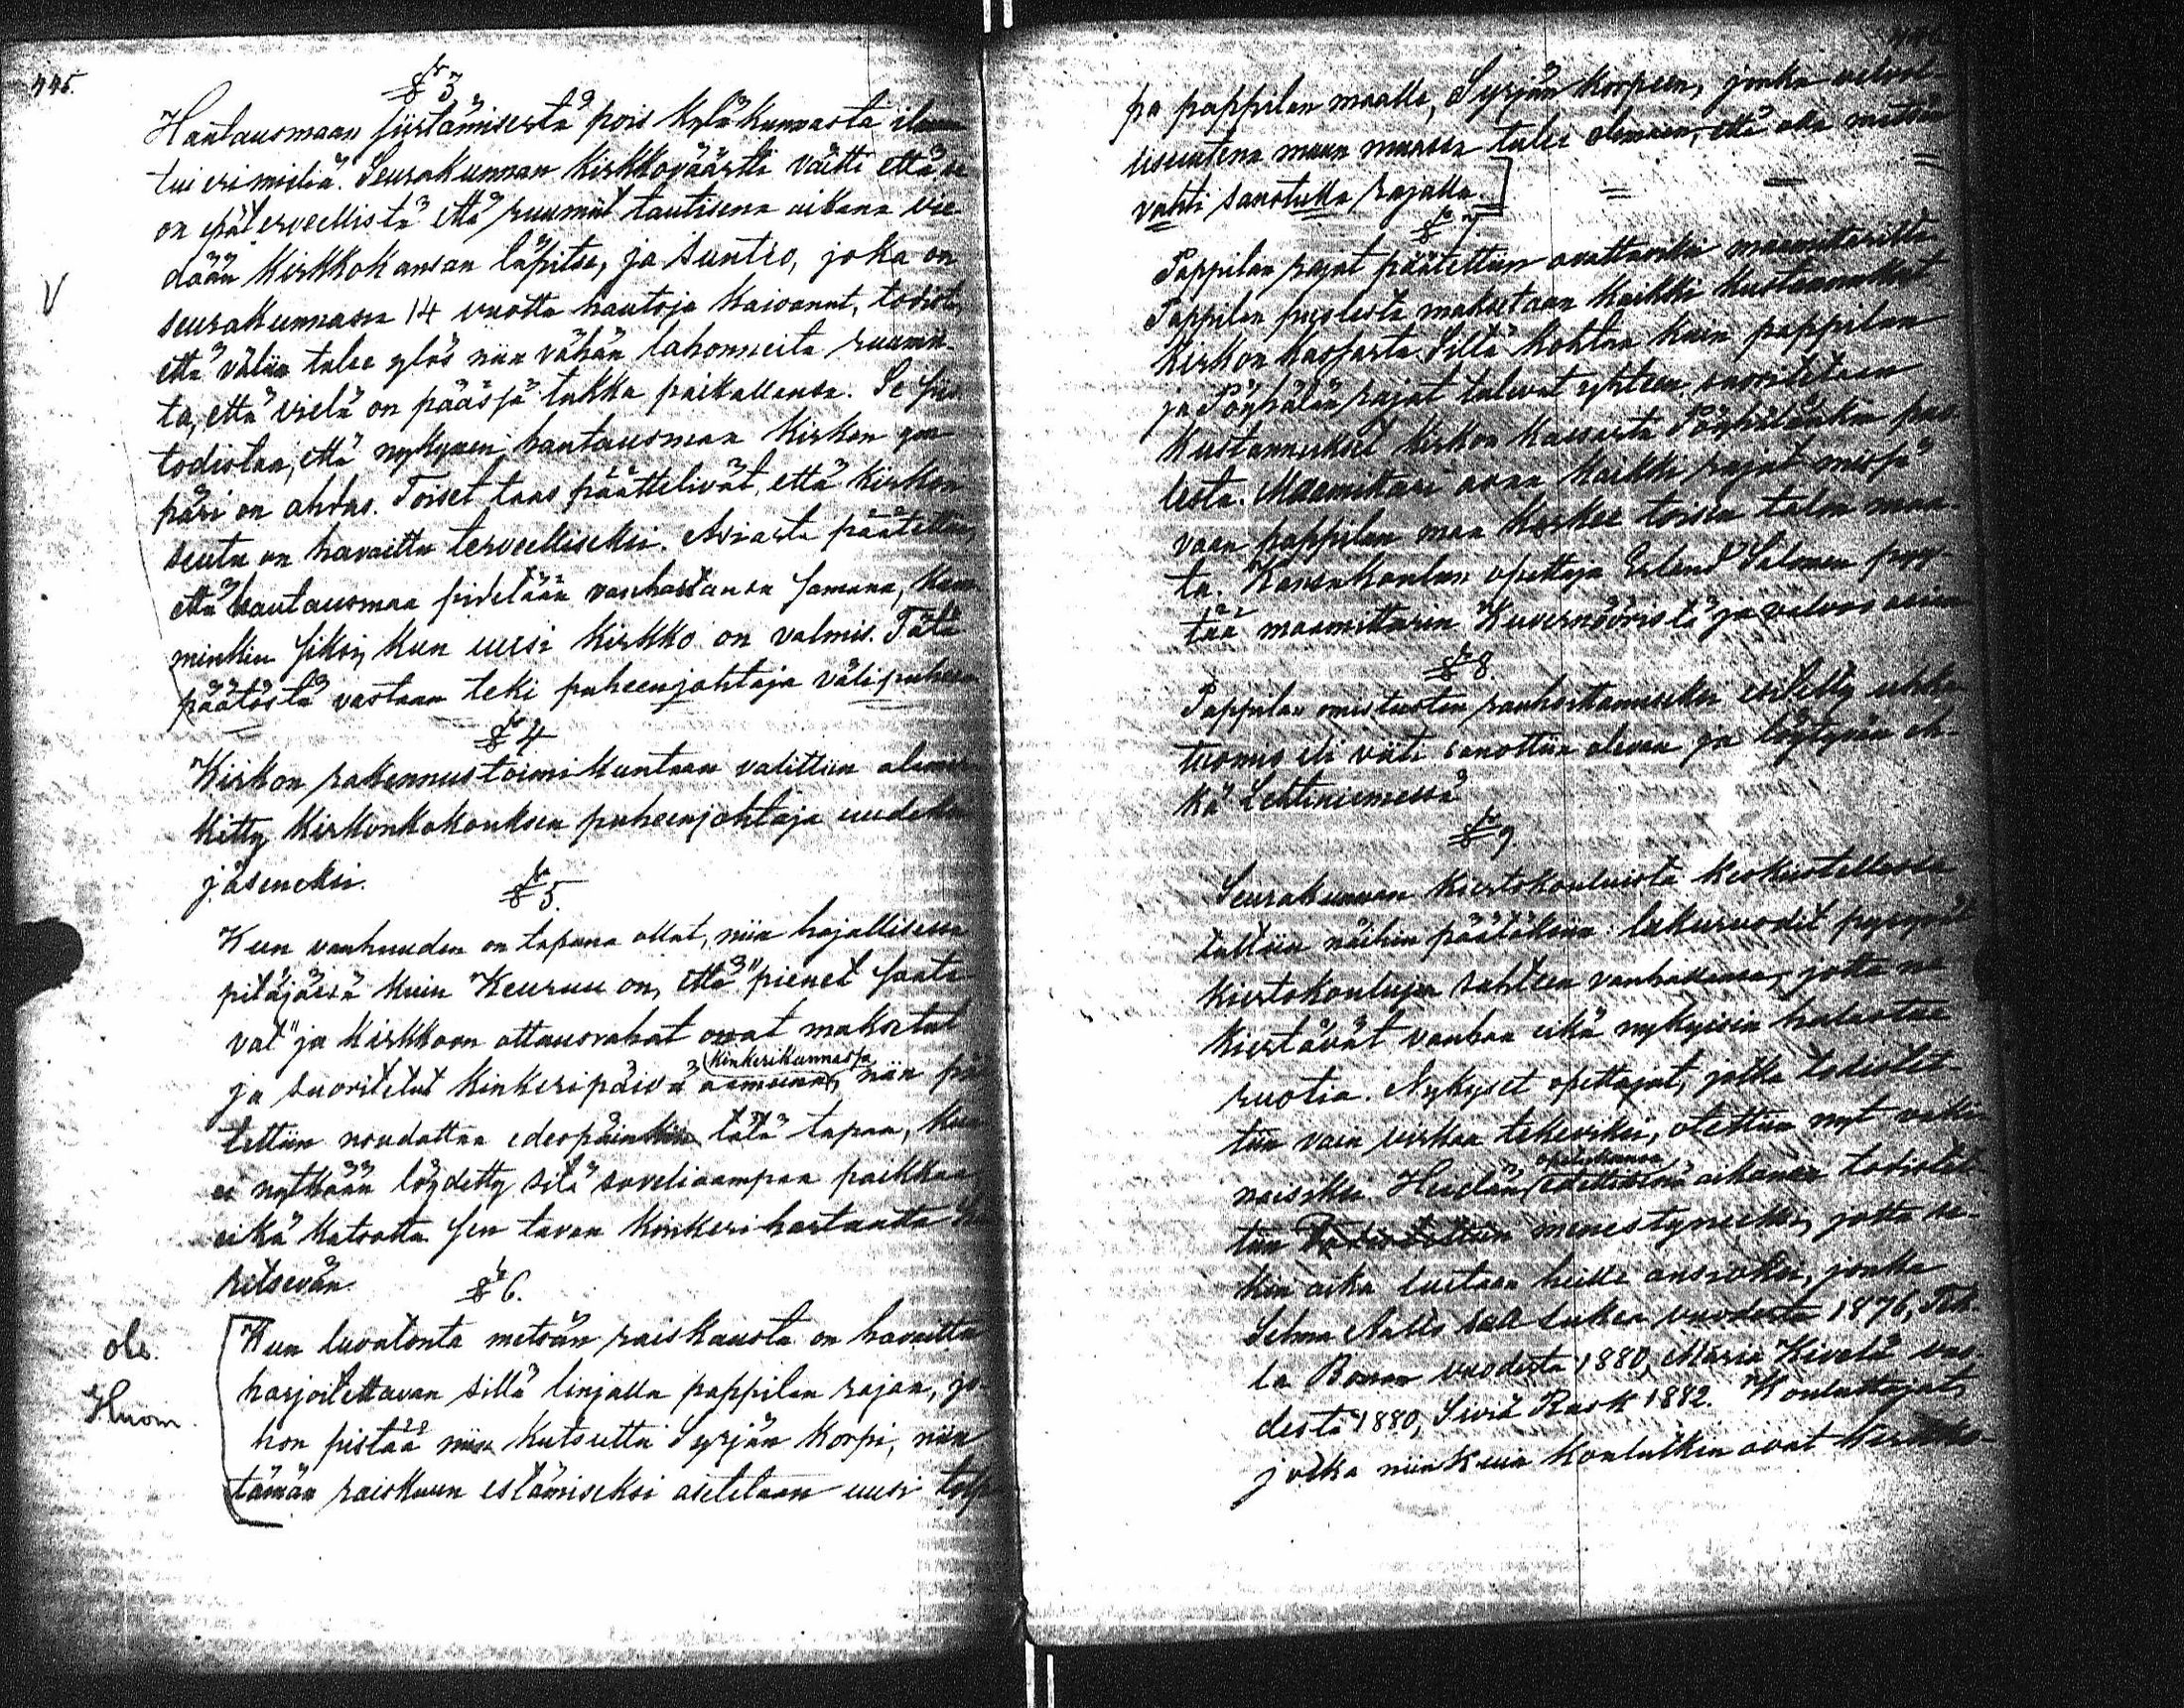 445.
§ 3
Hautausmaan siirtämisestä pois kyläkunnasta ilman
tui eri mieliä. Seurakunnan kirkkoväärtti väitti että se
on epäterveellistä että ruumiit tautisena aikana vie-
dään kirkkokansan läpitse, ja suntio, joka on
seurakunnassa 14 vuotta hautoja kaivanut, todisti,
että väliin tulee ylös niin vähän lahonneita ruumii-
ta, että vielä on pääsjä tukka paikallansa. Se siis
todistaa, että nykyinen hautausmaa kirkon ym-
päri on ahdas. Toiset taas päättelivät, että kirkon
seutu on havaittu terveelliseksi. Asiasta päätettiin,
että hautausmaa pidetään vanhastansa samana, kum-
minkin siksi, kun uusi kirkko on valmis. Tätä
päätöstä vastaan teki puheenjohtaja välipuheen
§ 4
Kirkon rakennustoimikuntaan valittiin alimer-
kitty kirkonkokouksen puheenjohtaja uudeksi
jäseneksi.
§ 5.
Kun vanhuuden on tapana ollut, niin hajallisessa
pitäjässä kuin Keuruu on, että "pienet saata-
vat" ja kirkkoon ottausrahat ovat maksetut
kinkerikunnassa
ja suoritetut kinkeripäivä aamuina, niin pää-
tettiin noudattaa edespäinkin tätä tapaa, kun
ei nytkään löydetty sitä soveliaampaa paikkaa
eikä katsottu sen tavan kinkeri hartautta hä-
ritsevän.
§ 6.
ote.
Huom.
Kun luvatonta metsän raiskausta on havaittu
harjoitettavan sillä linjalla pappilan rajaa, jo-
hon pistää niin kutsuttu Syrjän korpi, niin
tämän raiskuun estämiseksi asetetaan uusi torp-
pa pappilan maalle, Syrjän korpeen, jonka velvol-
lisuutena muun muassa tulee olemaan, että olla metsän
vahti sanotulla rajalla.
§ 7
Pappilan rajat päätettiin avattaviksi maamittarilta
Pappilan puolesta maksetaan kaikki kustannukset
kirkon kassasta. Sillä kohtaa kuin pappilan
ja Pöyhölän rajat tulevat yhteen, suoritetaan
kustannukset kirkon kassasta Pöyhölänkin puo-
lesta. Maamittari avaa kaikki rajat missä
vaan pappilan maa koskee toisen talon maa-
ta. Kansakoulun opettaja Erland Salonen pyy-
tää maamittarin Kuvernööristä ja valvoo asiaa
§ 8
Pappilan omistusten rauhoittamiseksi esitetty uhka
tuomio eli väli sanottiin olevan ja löytyvän eh-
kä Lehtiniemessä
§ 9.
Seurakunnan kiertokouluista keskustellessa
tultiin näihin päätöksiin: lukuvuodet pysyvät
kiertokoulujen suhteen vanhallansa, jotta ne
kiertävät vanhaa eikä nykyisin halustaa
ruotia. Nykyiset opettajat, jotka todistet-
tiin vain virkaa tekeviksi, otettiin nyt vaki-
naisiksi. Heidän aikansa todistet-
tiin menestyneeksi, jotta se-
kin aika luetaan heille ansioksi, jonka
Selma Aalto saa lukea vuodesta 1876,
la vuodesta 1880, Maria Kivelä vuo-
desta 1880, Rask 1882. Kouluttajat,
jotka niinkuin koulutkin ovat kirkko-